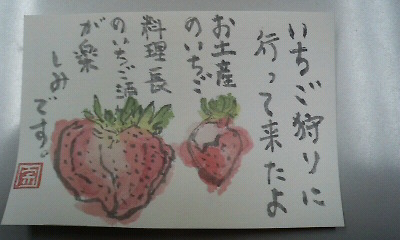 いちご狩りに
行って来たよ
お土産
のいちご
料理長
のいちご酒
が楽
しみです。